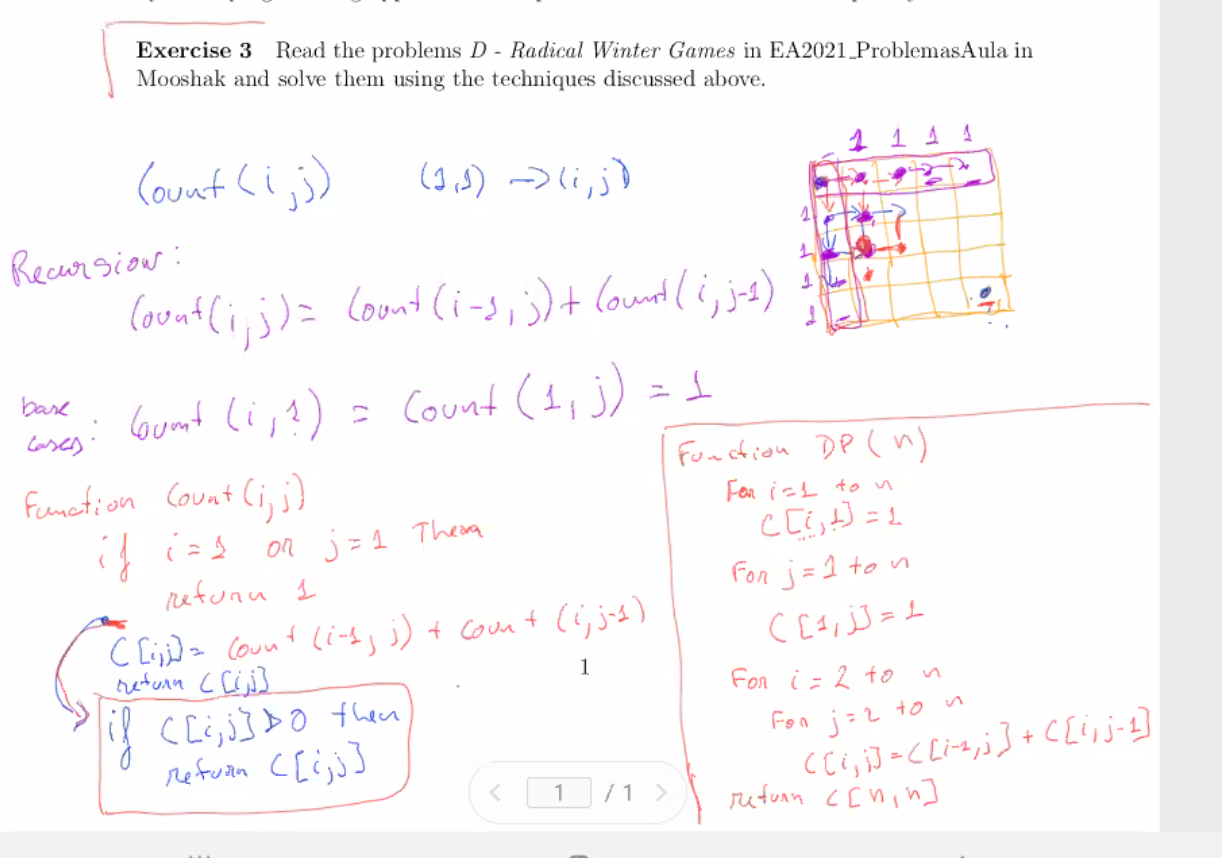 Exercise 3 Read the problems D - Radical Winter Games in EA2021_ProblemasAula in
Mooshak and solve them using the techniques discussed above.
Count(i,j) (1,1) → (i,j)
1 1 1 1
1
1
1
1
Recursion:
Count(i,j) = Count(i-1,j) + Count(i,j-1)
base cases: Count(i,1) = Count(1,j) = 1
Function Count(i,j)
if i=1 or j=1 Then
return 1
C[i,j] = Count(i-1,j) + Count(i,j-1)
return C[i,j]
if C[i,j]>0 then
return C[i,j]
Function DP(n)
For i=1 to n
C[i,1]=1
For j=1 to n
C[1,j]=1
For i=2 to n
For j=2 to n
C[i,j]=C[i-1,j]+C[i,j-1]
return C[n,n]
1
1 / 1